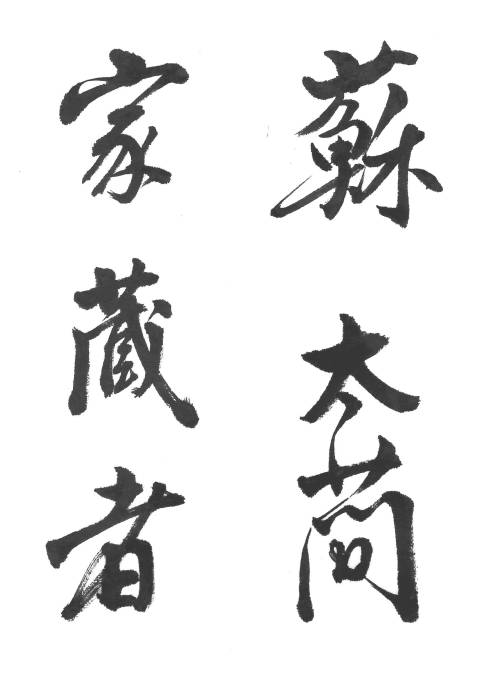 蘇太簡
家蔵者